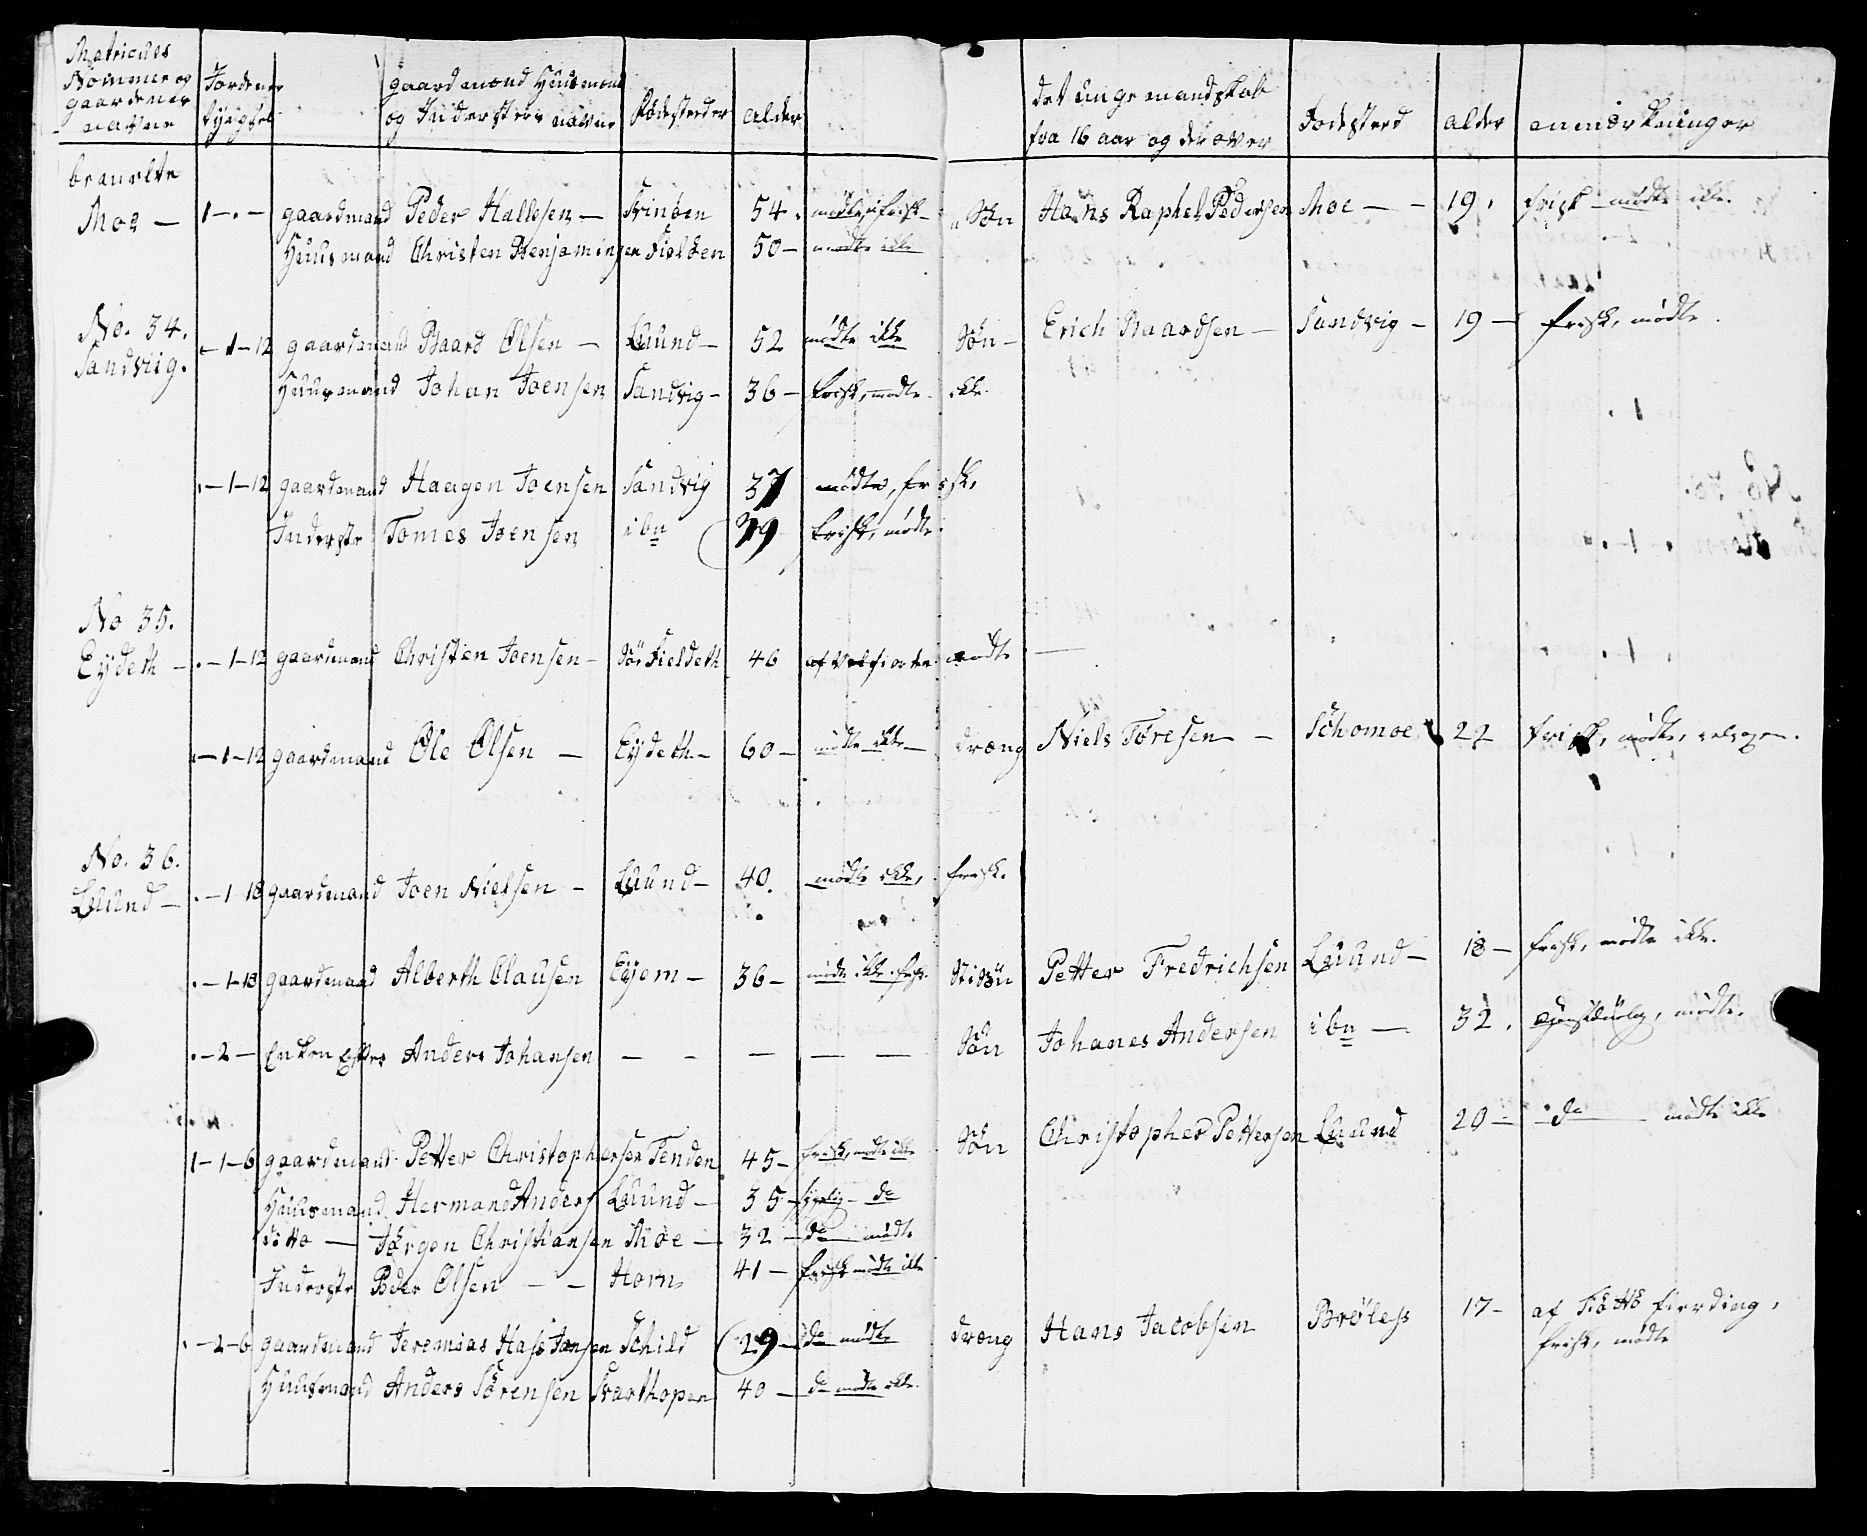 Matriculs Nommer og gaardenes navne | Jordenes | gaardmænd Huusmænd og Inderster navne | Fødesteder | alder | det unge mandskab fra 16 aar og derover | Fødested | alder | anmerkninger
benevlte
Moe — 1-.- gaardmand Peder Hallesen — Svinøen 54. Søn Hans Raphel Pedersen Moe — 19. frisk — mødte ikke.
Huusmand Christen Benjaminsen Fieldøen 50 — mødte ikke
No. 34.
Sandviig. .-1-12 gaardmand Baard Olsen — Luund — 52 mødte ikke Søn — Erich Baardsen — Sandvig — 19 — frisk, mødte.
Huusmand Johan Joensen Sandvig — 36 — frisk, mødte ikke.
.-1-12 gaardmand Haagen Joensen Sandvig 37 mødte, frisk,
Inderste Tomes Joensen ibn 39 frisk, mødte.
No 35.
Eydeth — .-1-12 gaardmand Christen Joensen — Sør Fieldeth 46 mødte —
.-1-12 gaardmand Ole Olsen — Eydeth — 60 — mødte ikke — dræng Niels Töresen — Schomoe 22 frisk, mødte,
No. 36.
Luund — .-1 18 gaardmand Joen Nielsen — Luund — 40. mødte ikke, frisk.
.-1-18 gaardmand Alberth Clausen Eyjem — 36 — mødte ikke. frisk. Stisøn Petter Fredrichsen Luund — 18 — frisk, mødte ikke.
.-2- Enken Efter Anders Johansen — — — — — Søn Johanes Andersen ibn — 32. mødte.
1-1-6 gaardmand Petter Christophersen Tenden 45 — frisk, mødte ikke Søn Christopher Pettersen Luund 20 — do — mødte ikke
Huusmand Hermand Anders Luund — 35 — sygelig — do
ditto — Jörgen Christiansen Moe — 32 — do mødte
Inderste Peder Olsen — — Horn 41 — frisk mødte ikke
.-2-6 gaardmand Jeremias Hass Jansen Schild 29 — do mødte dræng Hans Jacobsen Brøless 17 — af fierding, frisk, mødte
Huusmand Anders Sörensen Svarthopen 40 — do mødte ikke.